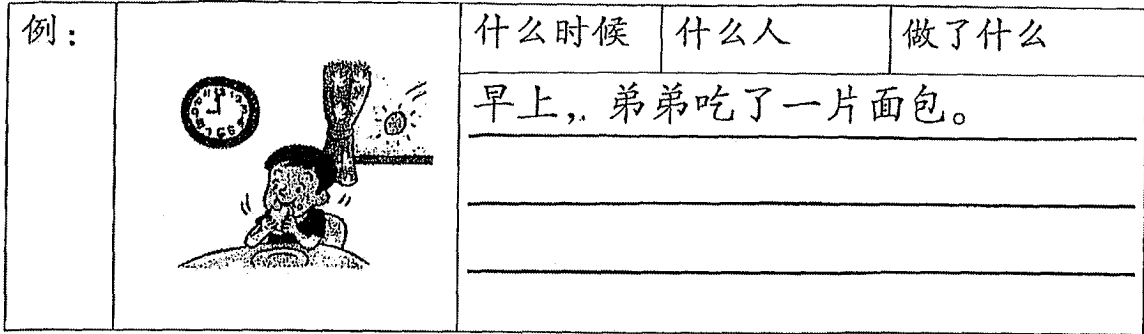 例：
什么时候 什么人 做了什么
早上，弟弟吃了一片面包。